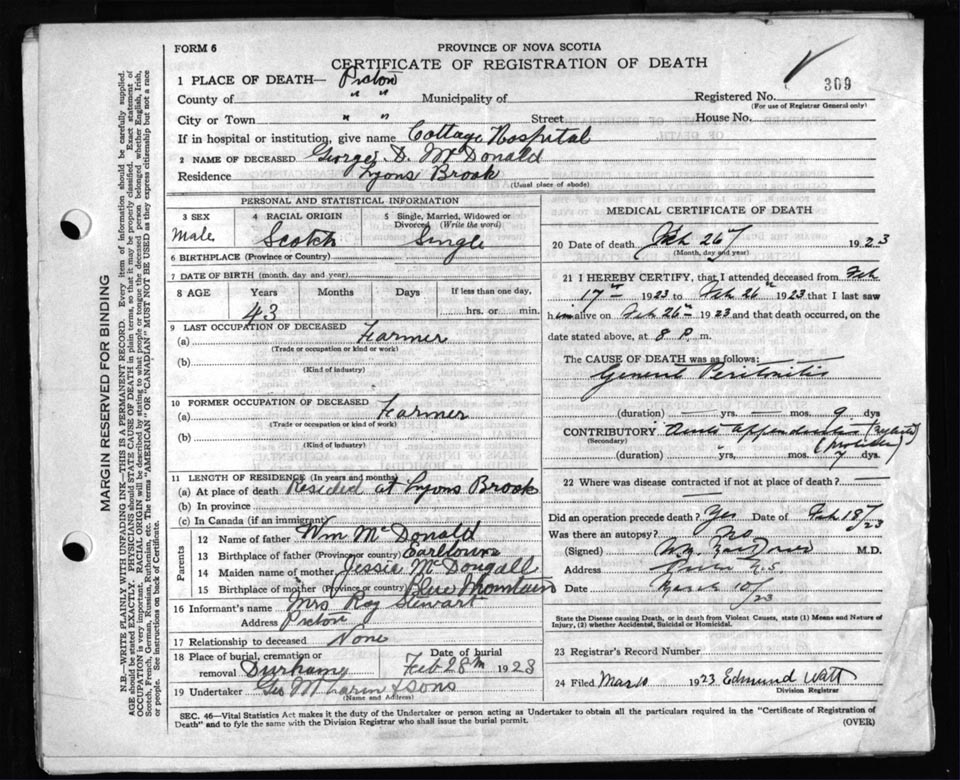 FORM 6
PROVINCE OF NOVA SCOTIA
CERTIFICATE OF REGISTRATION OF DEATH
309
1 PLACE OF DEATH— Pictou
County of " " Municipality of Registered No.
(For use of Registrar General only)
City or Town " " Street House No.
If in hospital or institution, give name Cottage Hospital
2 NAME OF DECEASED George D. McDonald
Residence Lyons Brook
(Usual place of abode)
PERSONAL AND STATISTICAL INFORMATION
3 SEX Male
4 RACIAL ORIGIN Scotch
5 Single, Married, Widowed or Divorced (Write the word) Single
6 BIRTHPLACE (Province or Country)
7 DATE OF BIRTH (month, day and year)
8 AGE Years Months Days If less than one day,
43 hrs. or min.
9 LAST OCCUPATION OF DECEASED
(a) Farmer
(Trade or occupation or kind of work)
(b)
(Kind of industry)
10 FORMER OCCUPATION OF DECEASED
(a) Farmer
(Trade or occupation or kind of work)
(b)
(Kind of industry)
11 LENGTH OF RESIDENCE (In years and months)
(a) At place of death Resided at Lyons Brook
(b) In province
(c) In Canada (if an immigrant)
Parents
12 Name of father Wm McDonald
13 Birthplace of father (Province or country) Earltown
14 Maiden name of mother Jessie McDougall
15 Birthplace of mother (Province or country) Blue Mountain
16 Informant's name Mrs Roy Stewart
Address Pictou
17 Relationship to deceased None
18 Place of burial, cremation or removal Durham
Date of burial Feb 28th 1923
19 Undertaker & Sons
(Name and Address)
MEDICAL CERTIFICATE OF DEATH
20 Date of death Feb 26 1923
(Month, day and year)
21 I HEREBY CERTIFY, that I attended deceased from Feb
17th 1923 to Feb 26th 1923 that I last saw
him alive on Feb 26th 1923 and that death occurred, on the
date stated above, at 8 P. m.
The CAUSE OF DEATH was as follows:
General Peritonitis
(duration) — yrs. — mos. 9 dys
CONTRIBUTORY Acute appendicitis
(Secondary)
(duration) yrs. — mos. 7 dys.
22 Where was disease contracted if not at place of death? —
Did an operation precede death? Yes Date of Feb 18/23
Was there an autopsy? No
(Signed) M.D.
Address Pictou N.S.
Date March 10/23
State the Disease causing Death, or in death from Violent Causes, state (1) Means and Nature of
Injury, (2) whether Accidental, Suicidal or Homicidal.
23 Registrar's Record Number
24 Filed Mar 10 1923 Edmund Watt
Division Registrar
SEC. 46—Vital Statistics Act makes it the duty of the Undertaker or person acting as Undertaker to obtain all the particulars required in the "Certificate of Registration of
Death" and to fyle the same with the Division Registrar who shall issue the burial permit.
(OVER)
MARGIN RESERVED FOR BINDING
N.B.—WRITE PLAINLY WITH UNFADING INK—THIS IS A PERMANENT RECORD. Every item of information should be carefully supplied.
AGE should be stated EXACTLY. PHYSICIANS should STATE CAUSE OF DEATH in plain terms, so that it may be properly classified. Exact statement of
OCCUPATION is very important. RACIAL ORIGIN will be described by stating to what people or tongue the deceased person belonged whether English, Irish,
Scotch, French, German, Russian, Ruthenian, etc. The terms "AMERICAN" OR "CANADIAN" MUST NOT BE USED as they express citizenship but not a race
or people. See instructions on back of Certificate.